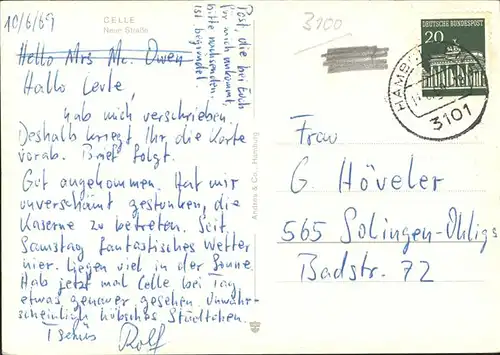 10/6/69
CELLE
Neue Straße
Hello Mrs Mc. Owen
Hallo Leute,
hab mich verschrieben,
Deshalb kriegt Ihr die Karte
vorab. Brief folgt.
Gut angekommen. Hat mir
unverschämt gestunken, die
Kaserne zu betreten. Seit
Samstag fantastisches Wetter
hier. Liegen viel in der Sonne.
Hab jetzt mal Celle bei Tag
etwas genauer gesehen. Unwahr-
scheinlich hübsches Städtchen.
Tschüs Rolf
Post, die bei Euch
für mich ankommt,
bitte nachsenden.
Ist begründet.
Andres & Co., Hamburg
3100
DEUTSCHE BUNDESPOST
20
3101
Frau
G. Höveler
565 Solingen-Ohligs
Badstr. 72